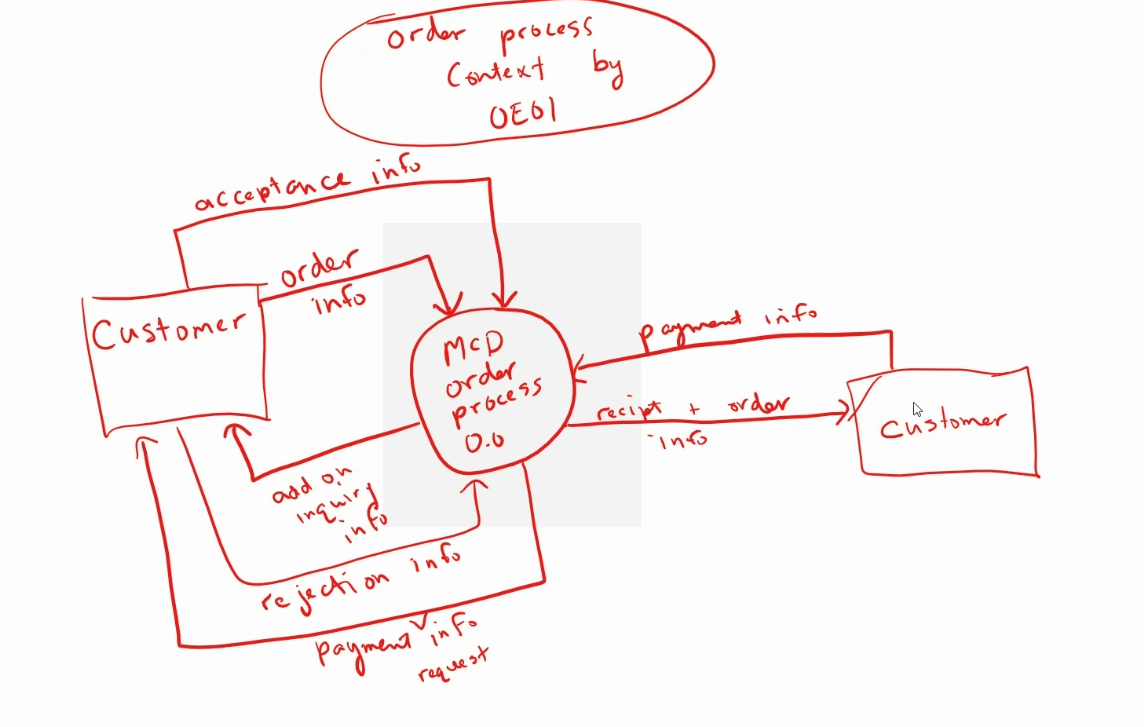 order process
Context by
OE01
acceptance info
order
info
Customer
McD
order
process
0.0
payment info
recipt + order
info
Customer
add on
inquiry
info
rejection info
payment info
request